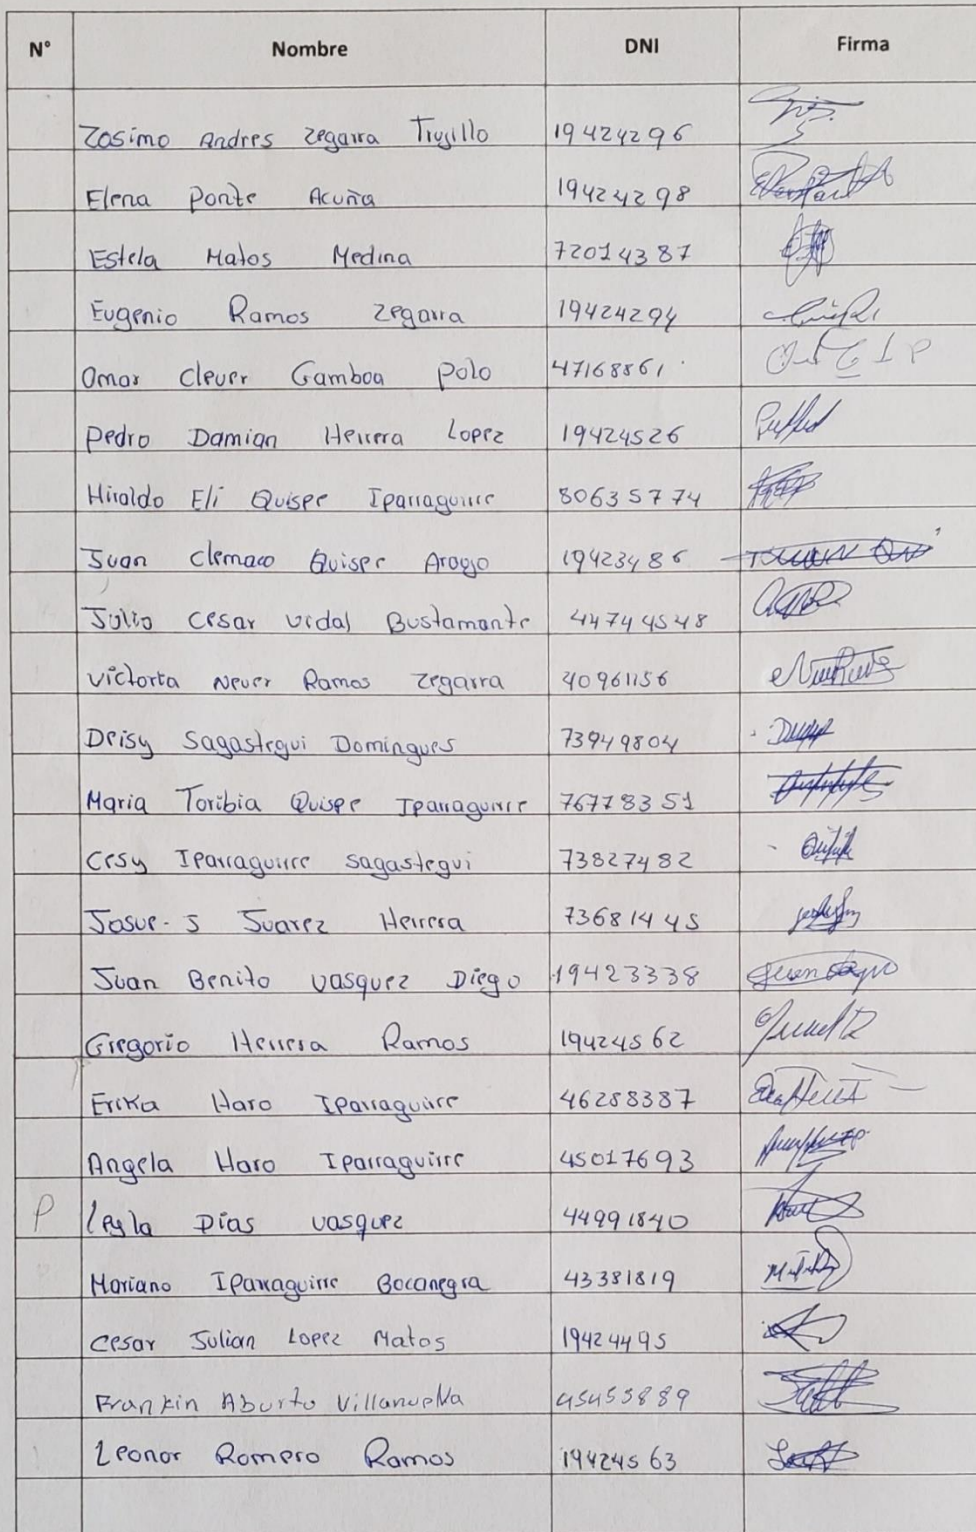 N° Nombre DNI Firma
Zosimo Andres Zegarra Trujillo 19424296
Elena Ponte Acuña 19424298
Estela Matos Medina 72014387
Eugenio Ramos Zegarra 19424294
Omar Clever Gamboa Polo 47168861
Pedro Damian Herrera Lopez 19424526
Hiraldo Eli Quispe Iparraguirre 80635774
Juan Clemaco Quispe Araujo 19423486
Julio Cesar Vidal Bustamante 44744548
Victoria Never Ramos Zegarra 40961156
Deisy Sagastegui Domingues 73949804
Maria Toribia Quispe Iparraguirre 76778351
Cesy Iparraguirre Sagastegui 73827482
Josue-J Juarez Herrera 73681445
Juan Benito Vasquez Diego 19423338
Gregorio Herrera Ramos 19424562
Erika Haro Iparraguirre 46288387
Angela Haro Iparraguirre 45017693
P Leyla Dias Vasquez 44991840
Mariano Iparraguirre Bocanegra 43381819
Cesar Julian Lopez Matos 19424495
Frankin Aburto Villanueva 45455889
Leonor Romero Ramos 19424563